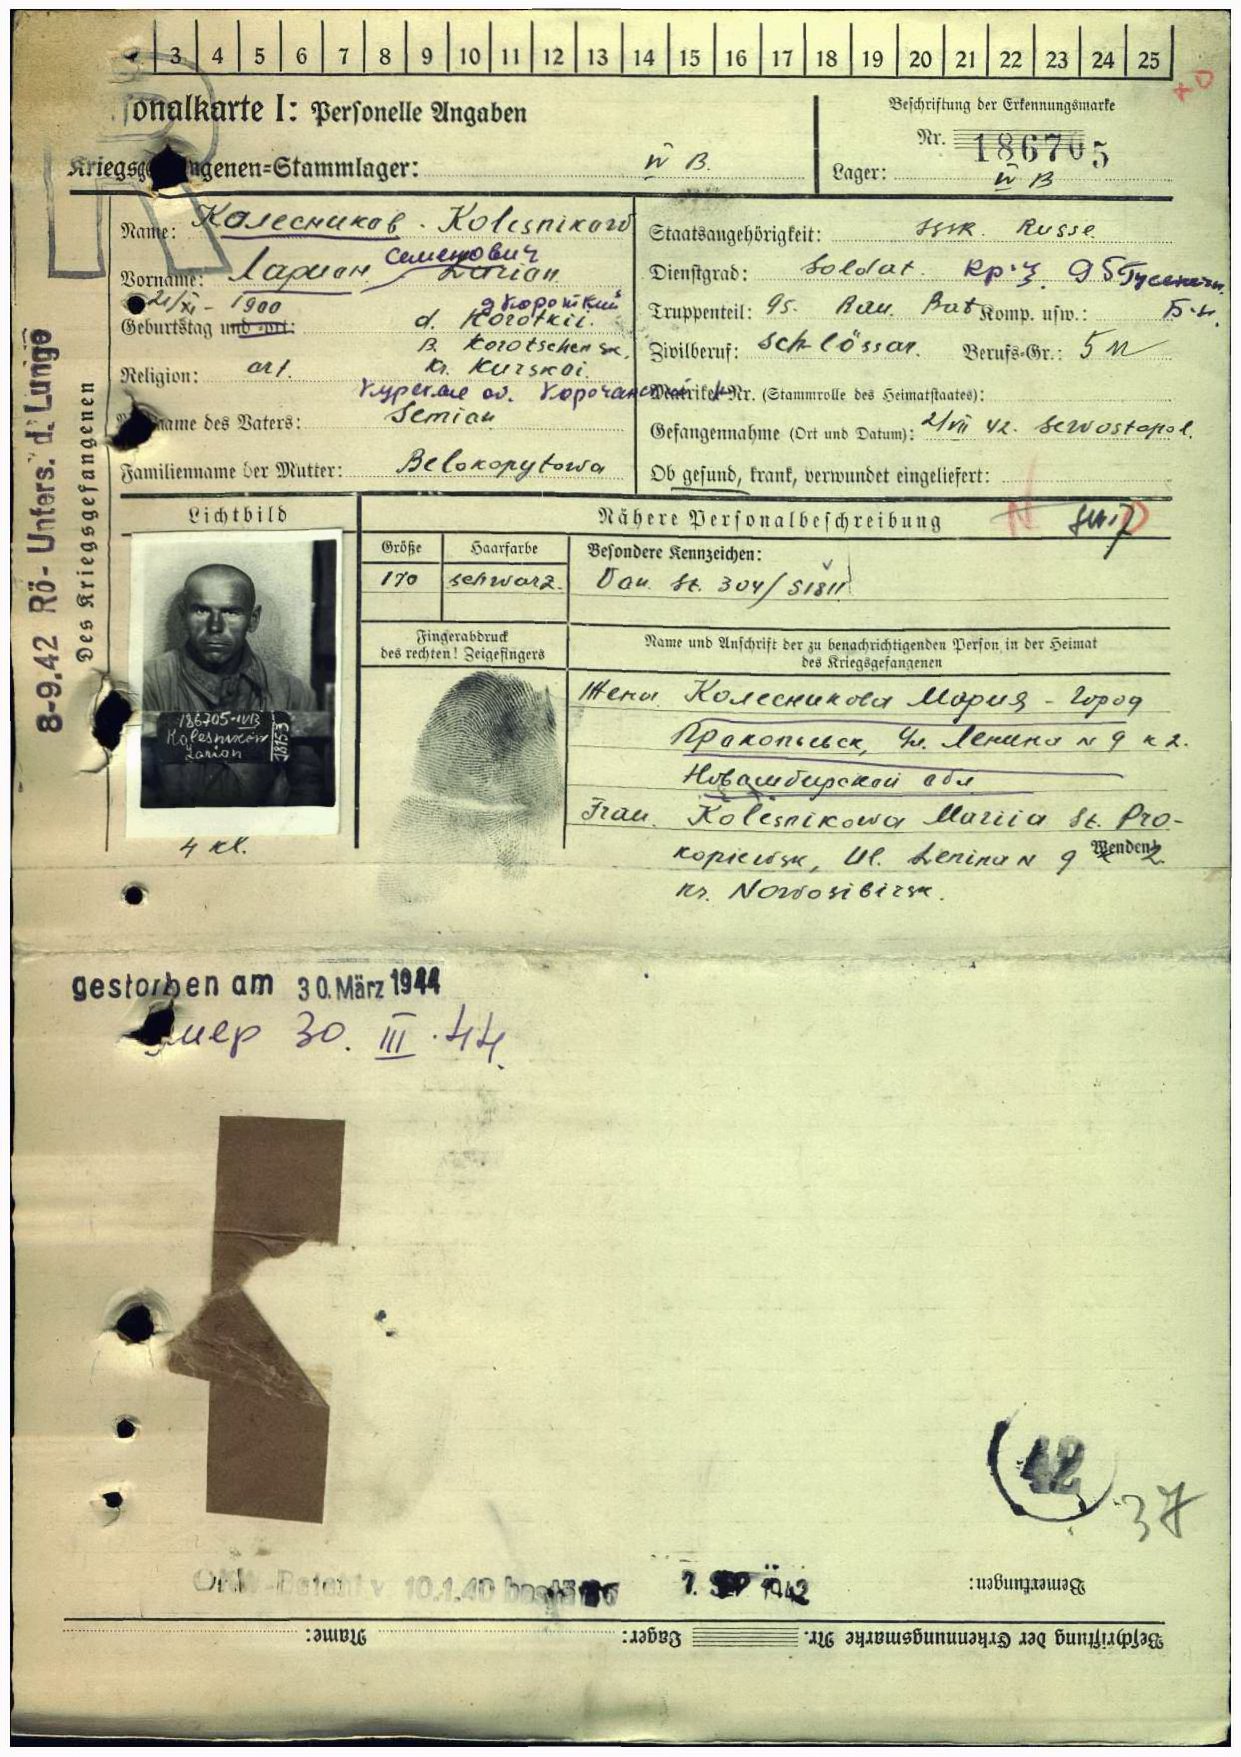 3 4 5 6 7 8 9 10 11 12 13 14 15 16 17 18 19 20 21 22 23 24 25
onalkarte I: Personelle Angaben
Beschriftung der Erkennungsmarke
Nr. 186705
Kriegsg ngenen=Stammlager: IV B.
Lager: IV B
Name: Колесников. Kolesnikow
Staatsangehörigkeit: Russe
Семенович
Vorname: Ларион Larion
Dienstgrad: Soldat. кр-ц 95
21/XI - 1900
Geburtstag und -ort: d. Korotkii.
Truppenteil: 95. Bat Komp. usw.:
B. Korotschensk,
Zivilberuf: Schlössar. Berufs-Gr.: 5
Religion: ort. Kr. Kurskoi.
Matrikel Nr. (Stammrolle des Heimatstaates):
ame des Vaters: Semian
Gefangennahme (Ort und Datum): 2/VII 42. Sewostopol.
Familienname der Mutter: Belokopytowa
Ob gesund, krank, verwundet eingeliefert:
8-9.42 Rö- Unters. d. Lunge
Des Kriegsgefangenen
Lichtbild
Nähere Personalbeschreibung
Größe Haarfarbe Besondere Kennzeichen:
170 schwarz. St. 304/
Fingerabdruck
des rechten! Zeigefingers
Name und Anschrift der zu benachrichtigenden Person in der Heimat
des Kriegsgefangenen
186705-IVB
Kolesnikow
Larion
18153
Жена Колесникова Мария - город
Прокопьевск, Ул. Ленина N 9 к 2.
Новосибирской обл
Frau. Kolesnikowa Mariia St. Pro-
kopiewsk, Ul. Lenina N 9 2
Wenden!
kr. Nowosibirsk.
4 kl.
gestorben am 30. März 1944
умер 30. III.44.
42
37
10.1.40
7. 1942
Bemerkungen:
Beschriftung der Erkennungsmarke Nr. Lager: Name: